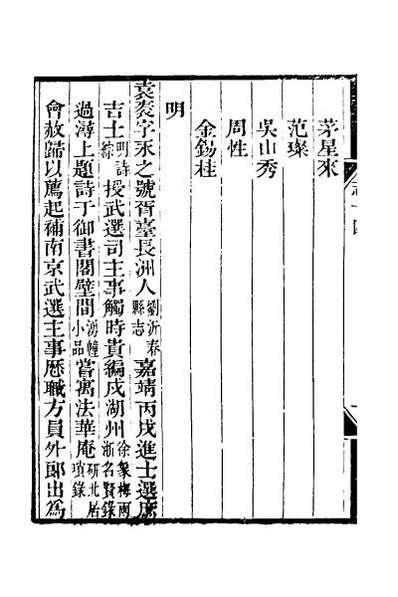 茅星來
范璨
吳山秀
周性
金錫桂
明
袁袠字永之號胥臺長洲人劉沂春縣志嘉靖丙戌進士選庶
吉士明詩綜授武選司主事觸時貴編戍湖州徐象梅兩浙名賢錄
過潯上題詩于御書閣壁間湧幢小品嘗寓法華庵研北居瑣錄
會赦歸以薦起補南京武選主事歷職方員外郎出為